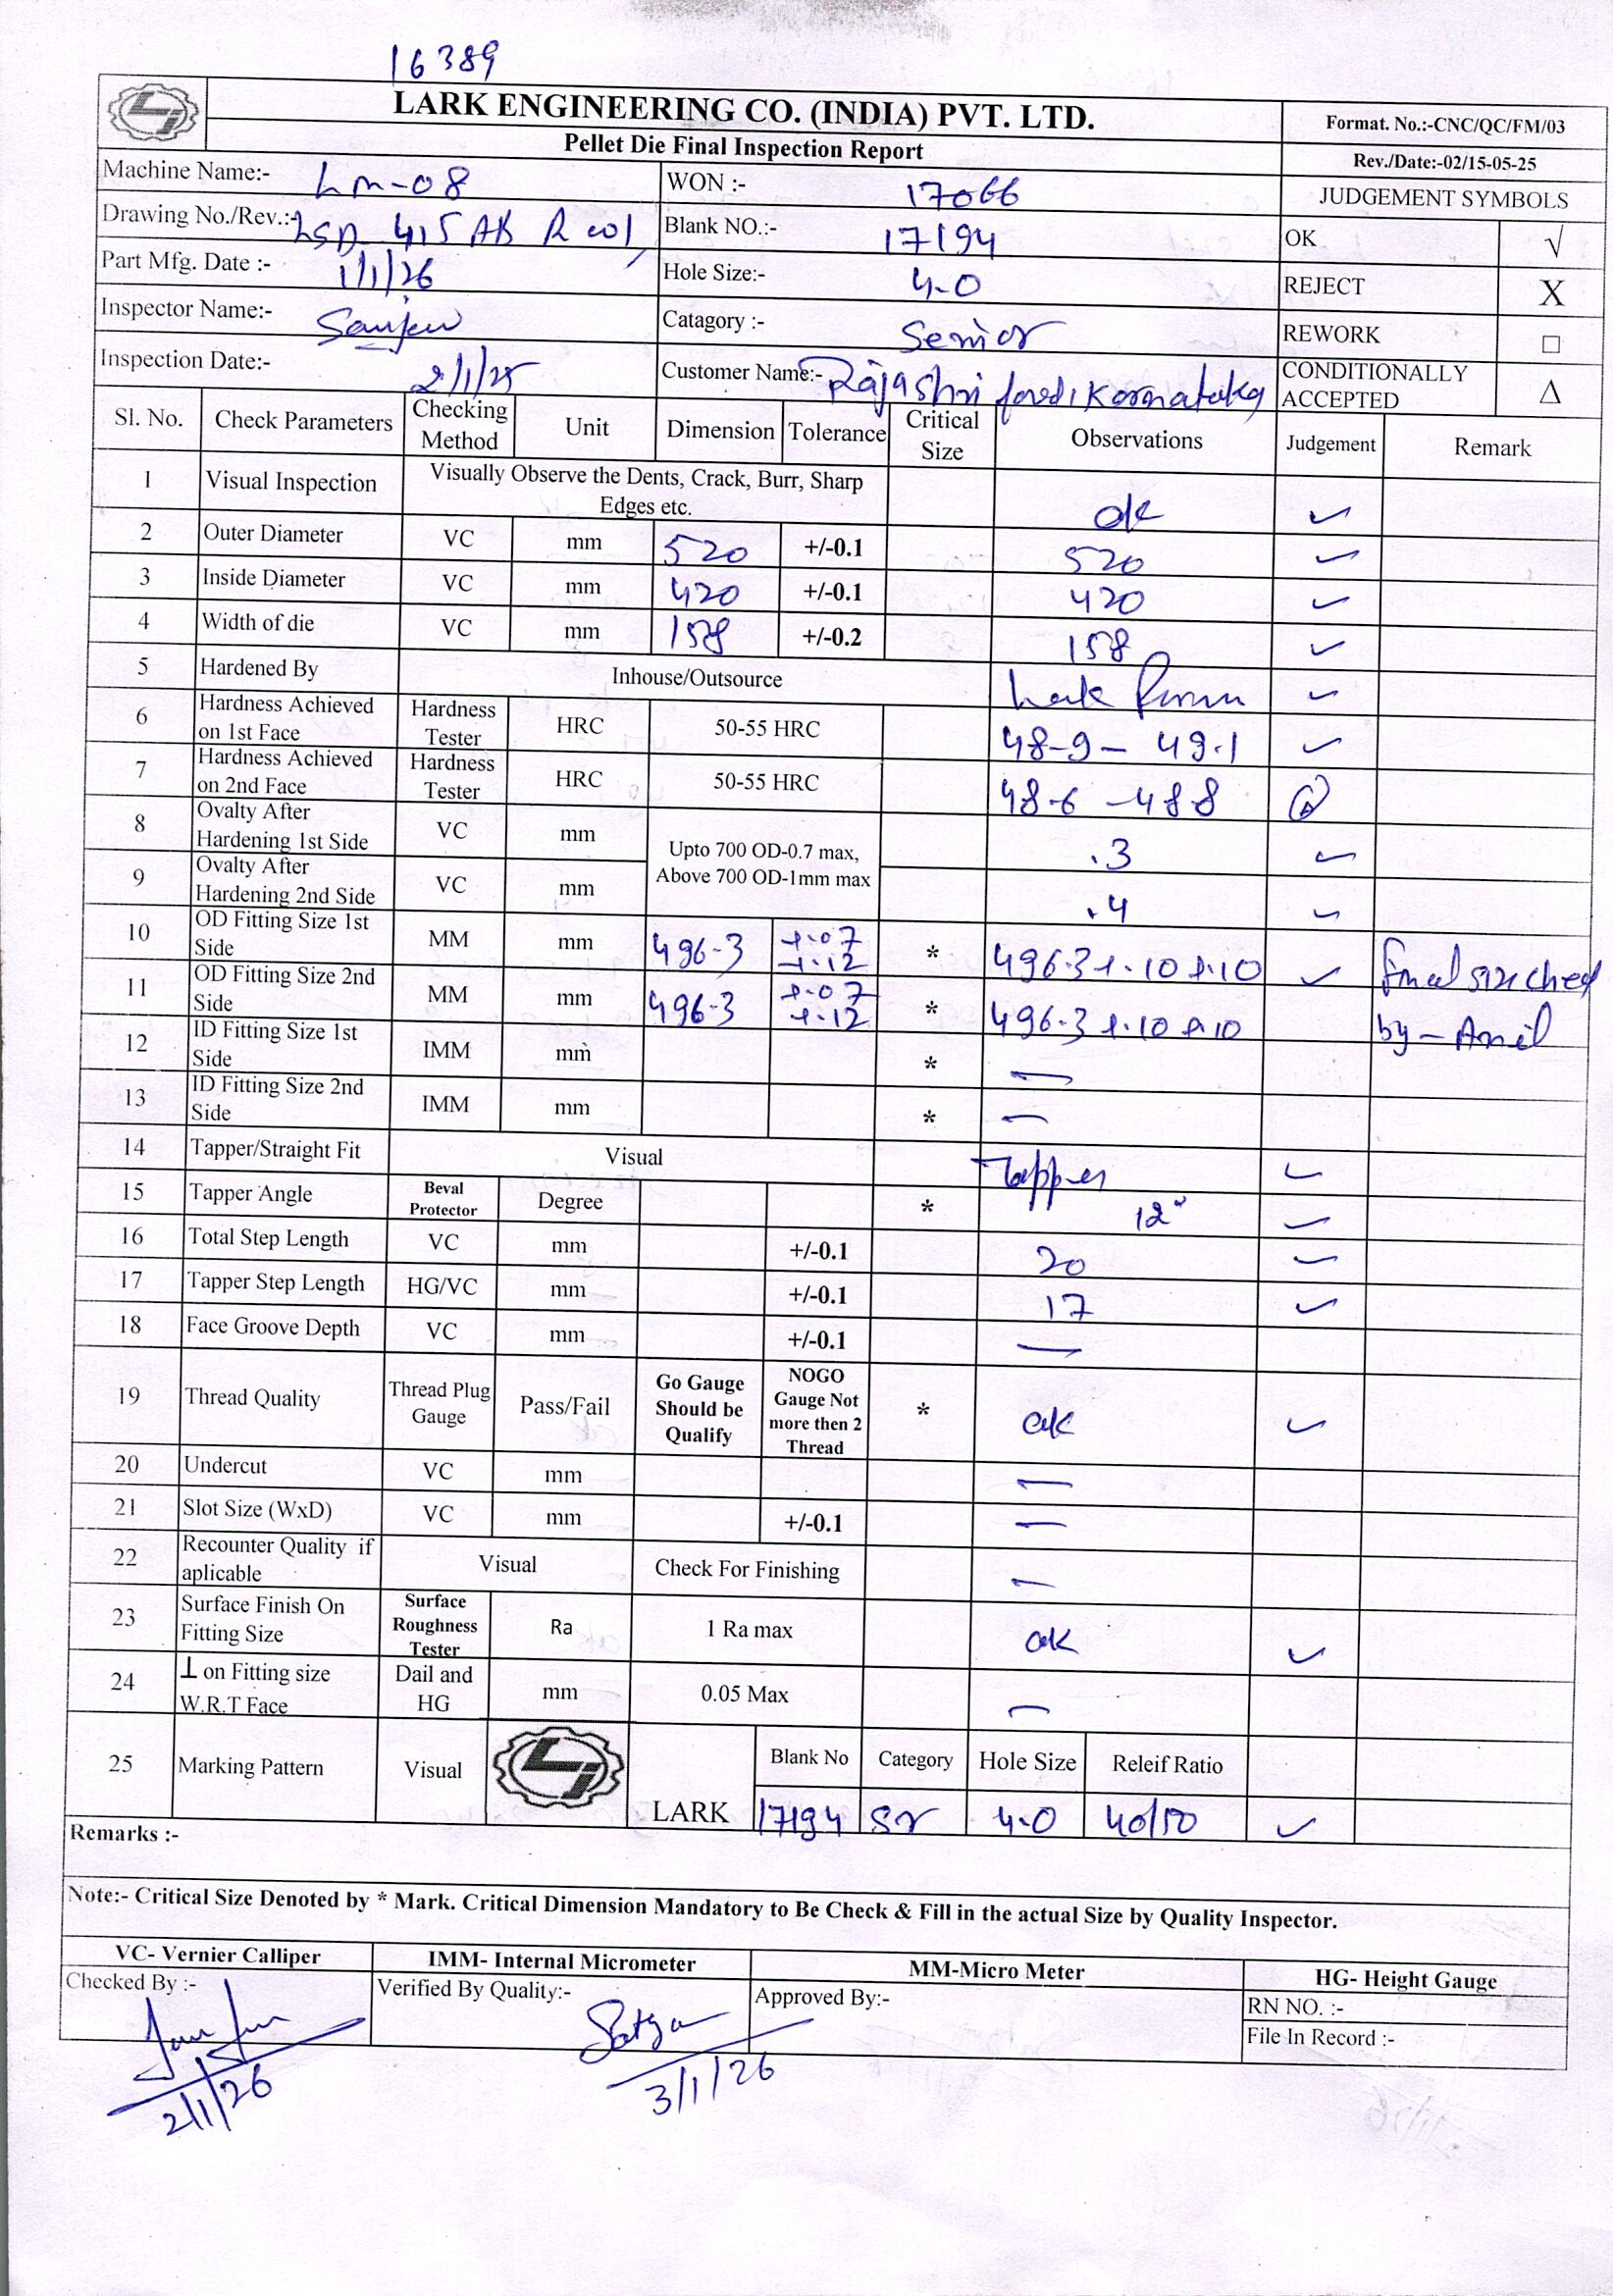 16389
LARK ENGINEERING CO. (INDIA) PVT. LTD.
Pellet Die Final Inspection Report
Format. No.:-CNC/QC/FM/03
Rev./Date:-02/15-05-25
Machine Name:- Lm-08
WON :- 17066
JUDGEMENT SYMBOLS
Drawing No./Rev.:- LSD 415 AB R
Blank NO.:- 17194
OK √
Part Mfg. Date :- 1/1/26
Hole Size:- 4.0
REJECT X
Inspector Name:- Sanjeev
Catagory :- Senior
REWORK □
Inspection Date:- 2/1/25
Customer Name:- Rajashri
CONDITIONALLY ACCEPTED Δ
Sl. No. Check Parameters Checking Method Unit Dimension Tolerance Critical Size Observations Judgement Remark
1 Visual Inspection Visually Observe the Dents, Crack, Burr, Sharp Edges etc. ok ✓
2 Outer Diameter VC mm 520 +/-0.1 520 ✓
3 Inside Diameter VC mm 420 +/-0.1 420 ✓
4 Width of die VC mm 158 +/-0.2 158 ✓
5 Hardened By Inhouse/Outsource Lark ✓
6 Hardness Achieved on 1st Face Hardness Tester HRC 50-55 HRC 48-9 - 49.1 ✓
7 Hardness Achieved on 2nd Face Hardness Tester HRC 50-55 HRC 48-6 - 48-8
8 Ovalty After Hardening 1st Side VC mm Upto 700 OD-0.7 max, Above 700 OD-1mm max .3 ✓
9 Ovalty After Hardening 2nd Side VC mm .4 ✓
10 OD Fitting Size 1st Side MM mm 496-3 +.07 +.12 * 496-3 +.10 +.10 ✓ final size check
11 OD Fitting Size 2nd Side MM mm 496-3 +.07 +.12 * 496-3 +.10 +.10 by - Anil
12 ID Fitting Size 1st Side IMM mm * —
13 ID Fitting Size 2nd Side IMM mm * —
14 Tapper/Straight Fit Visual Tapper ✓
15 Tapper Angle Beval Protector Degree * 12° ✓
16 Total Step Length VC mm +/-0.1 20 ✓
17 Tapper Step Length HG/VC mm +/-0.1 17 ✓
18 Face Groove Depth VC mm +/-0.1 —
19 Thread Quality Thread Plug Gauge Pass/Fail Go Gauge Should be Qualify NOGO Gauge Not more then 2 Thread * ok ✓
20 Undercut VC mm —
21 Slot Size (WxD) VC mm +/-0.1 —
22 Recounter Quality if aplicable Visual Check For Finishing —
23 Surface Finish On Fitting Size Surface Roughness Tester Ra 1 Ra max ok ✓
24 ⊥ on Fitting size W.R.T Face Dail and HG mm 0.05 Max —
25 Marking Pattern Visual LARK Blank No Category Hole Size Releif Ratio
17194 Sr 4.0 40/50 ✓
Remarks :-
Note:- Critical Size Denoted by * Mark. Critical Dimension Mandatory to Be Check & Fill in the actual Size by Quality Inspector.
VC- Vernier Calliper IMM- Internal Micrometer MM-Micro Meter HG- Height Gauge
Checked By :- Verified By Quality:- Satya Approved By:- RN NO. :-
File In Record :-
2/1/26 3/1/26